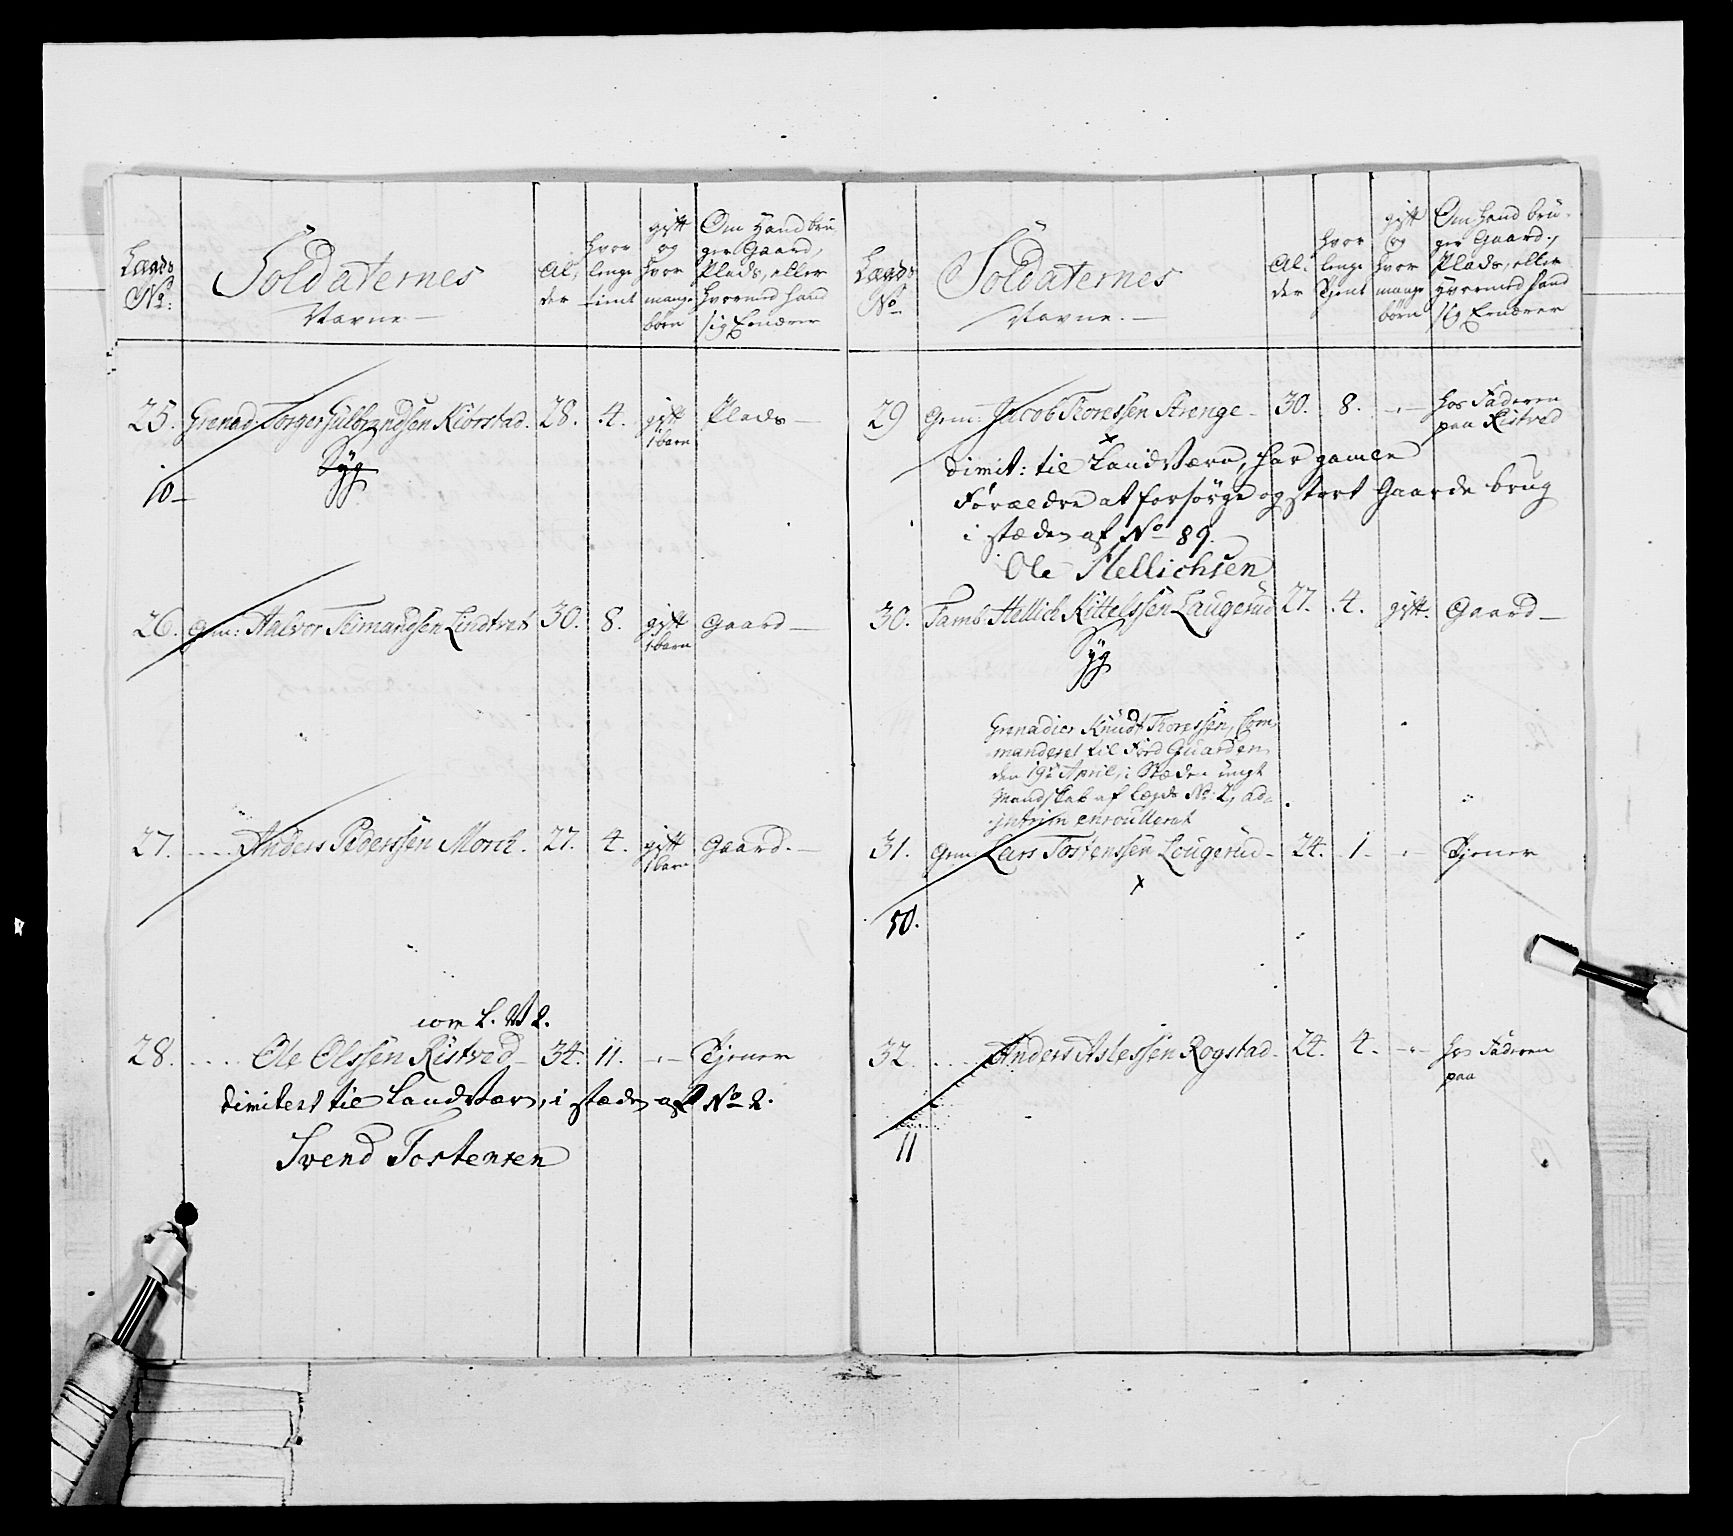 Lægds No:
Soldaternes
Navne
Al, der
hvor lenge tient
gift og hvor mange børn
Om Hand bru
ger Gaard,
Plads, eller
hvormed hand
sig Ernærer
25. Grenad Torger Gulbrandsen Kibrstad. 28. 4. gift 1 barn Plads
Syg
10
26. Gem: Halvor Teimandsen Lindtvet 30. 8. gift 1 barn Gaard
27. Anders Pedersen Morch. 27. 4. gift 1 barn Gaard.
com L. W 2.
28. Ole Olssen Ristved 34. 11. Tjener
dimitert til Landværn, i stæden af No 2.
Svend Tostensen
Lægds No
Soldaternes
Navne.
Al. der
hvor lenge Tjent
gift og hvor mange børn
Om hand bru-
ger Gaard,
Plads, eller
hvormed hand
sig Ernærer
29 Gem: Jacob Thoressen Strenge 30. 8. hos Faderen
paa Ristved
dimit: til Landværn, har gamle
Forældre at forsørge og stort Gaards brug
i stæden af No 89.
Ole Hellichsen
30. Tamb. Hellich Kittelssen Laugerud 27. 4. gift. Gaard
Syg
Grenadier Knudt Thoressen, Com
manderet til Ford Guarden
den 19de April, i Stæden ungt
Mandskab af Lægds No: 2, ad
jntrim enroulleret
31. Gem Lars Tostenssen Lougerud 24. 1. Tjener
x
10.
32. Anders Aslessen Rogstad 24. 4. hos Faderen
paa
11